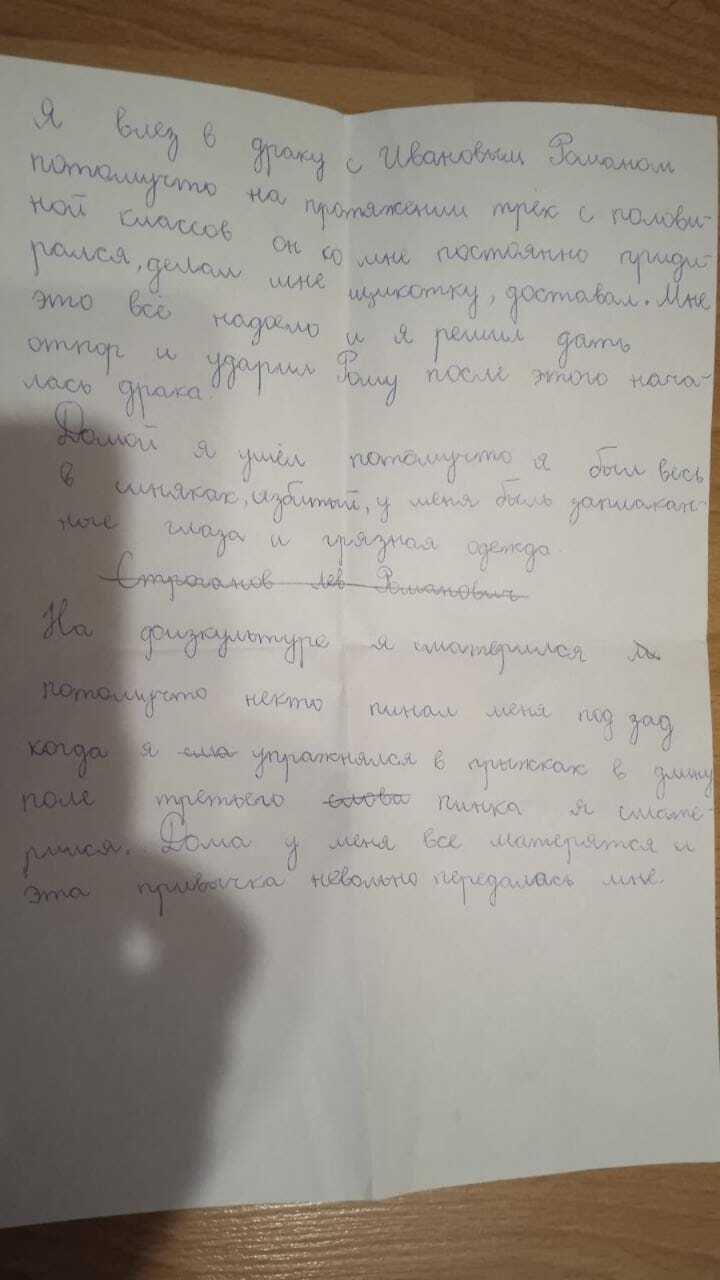 Я влез в драку с Ивановым Романом
потомучто на протяжении трёх с полови-
ной классов он ко мне постоянно приди-
рался, делал мне щикотку, доставал. Мне
это всё надоело и я решил дать
отпор и ударил Рому после этого нача-
лась драка.
Домой я ушёл потомучто я был весь
в синяках, избитый, у меня быль заплакан-
ные глаза и грязная одежда.
Строганов Лев Романович
На физкультуре я сматерился
потомучто некто пинал меня под зад
когда я сма упражнялся в прыжках в длину
поле третьего слова пинка я смате-
рился. Дома у меня все матерятся и
эта привычка невольно передалась мне.